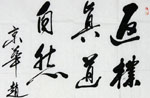 返樸
真道
自然
京華趙